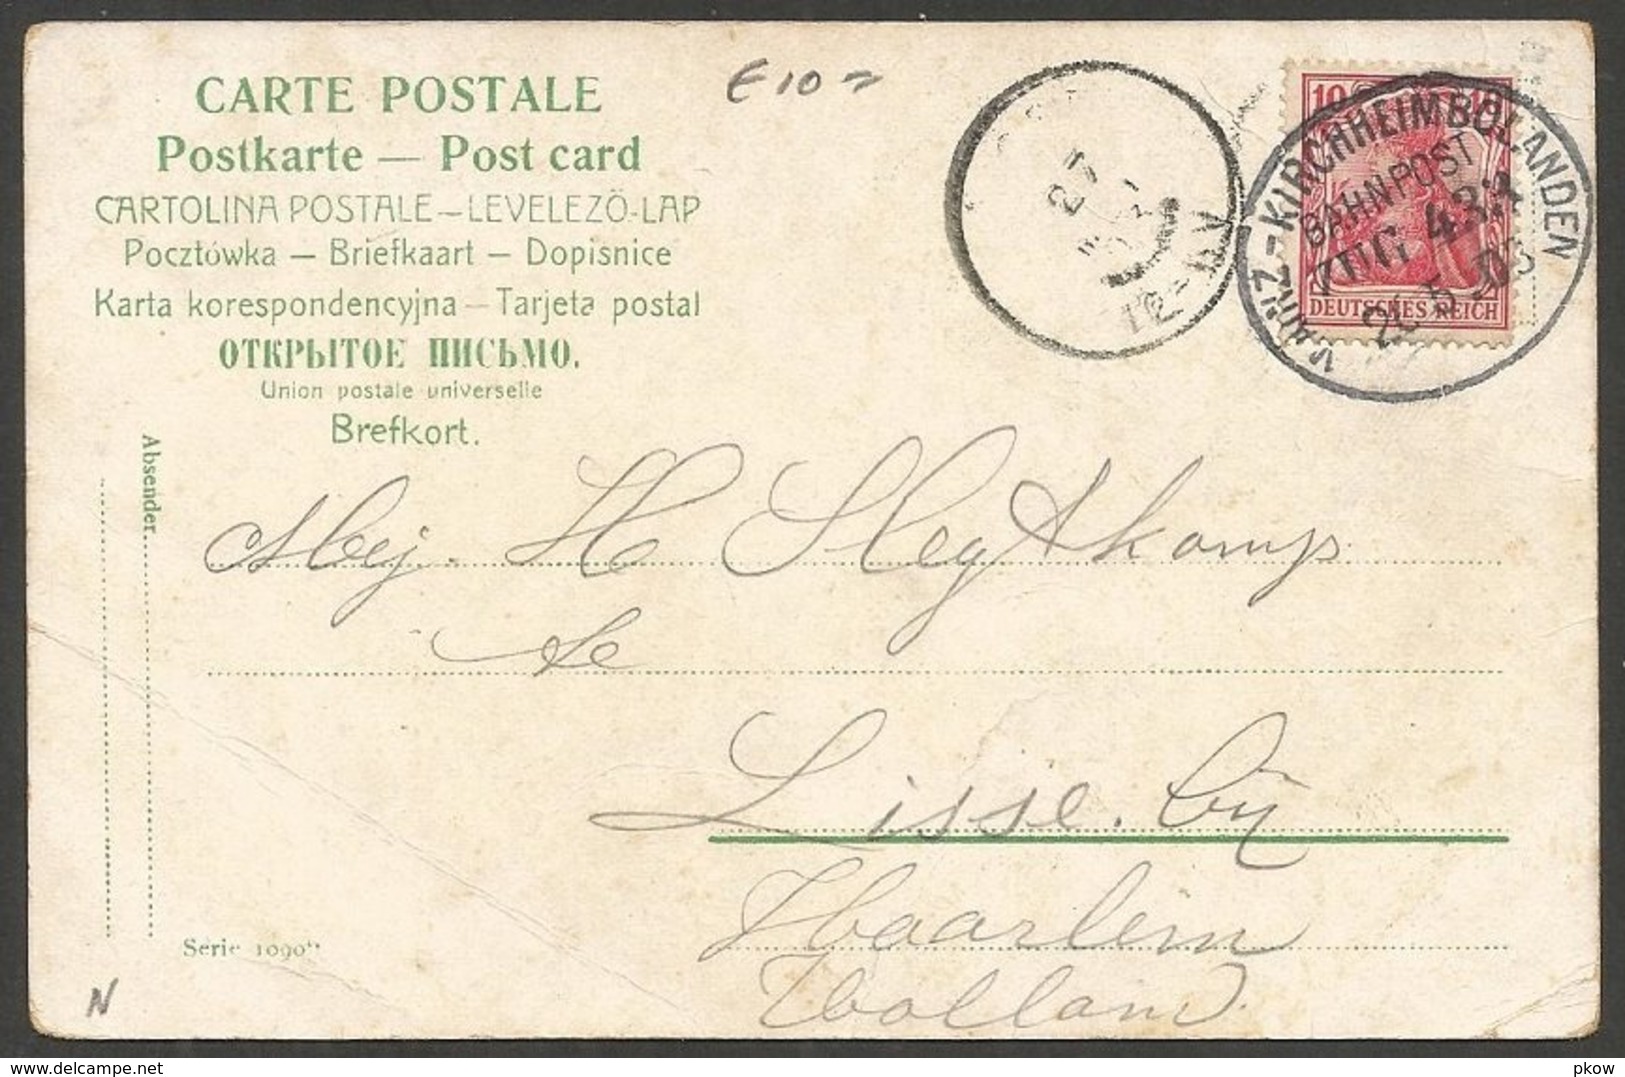 CARTE POSTALE
Postkarte — Post card
CARTOLINA POSTALE – LEVELEZŐ-LAP
Pocztówka — Briefkaart — Dopisnice
Karta korespondencyjna — Tarjeta postal
ОТКРЫТОЕ ПИСЬМО.
Union postale universelle
Brefkort.
E10=
27
12-1N
MAINZ-KIRCHHEIMBOLANDEN
BAHNPOST
ZUG
26 5 03
10
DEUTSCHES REICH
Absender
Mej. H
te
Lisse. bij
Haarlem
Holland.
Serie 1090
N
delcampe.net
pkow